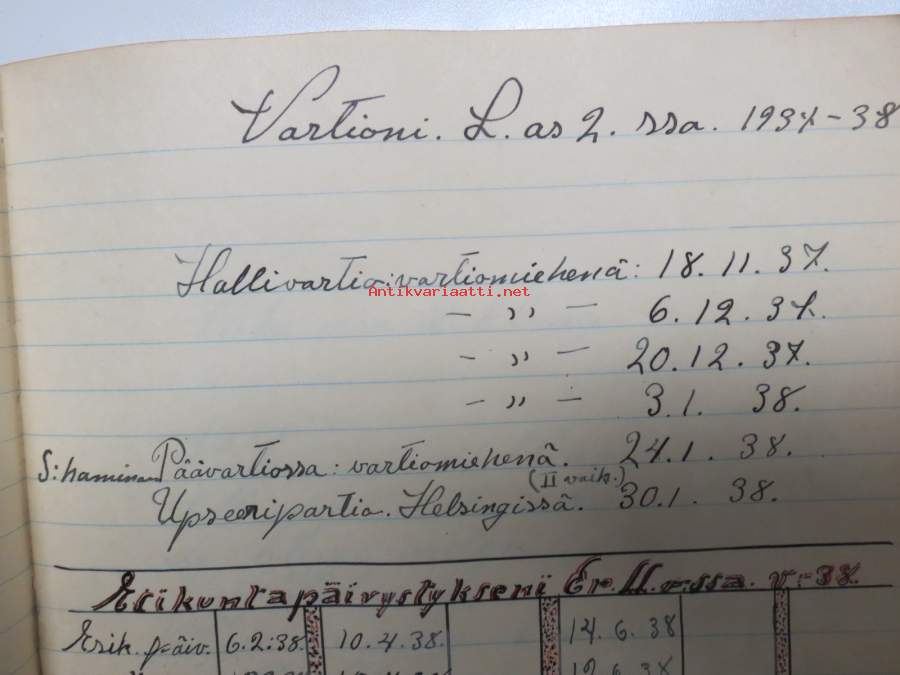 Vartioni. L. as 2. ssa. 1937-38
Hallivartio: vartiomiehenä: 18.11.37.
Antikvariaatti.net
— ,, — 6.12.37.
— ,, — 20.12.37.
— ,, — 3.1. 38.
S:haminan Päävartiossa: vartiomiehenä. 24.1. 38.
(II vaih.)
Upseeripartio. Helsingissä. 30.1. 38.
Erikuntapäivystykseni Er.II.essa. v:-38
Erik. päiv. 6.2:38. 10.4.38. 14.6.38